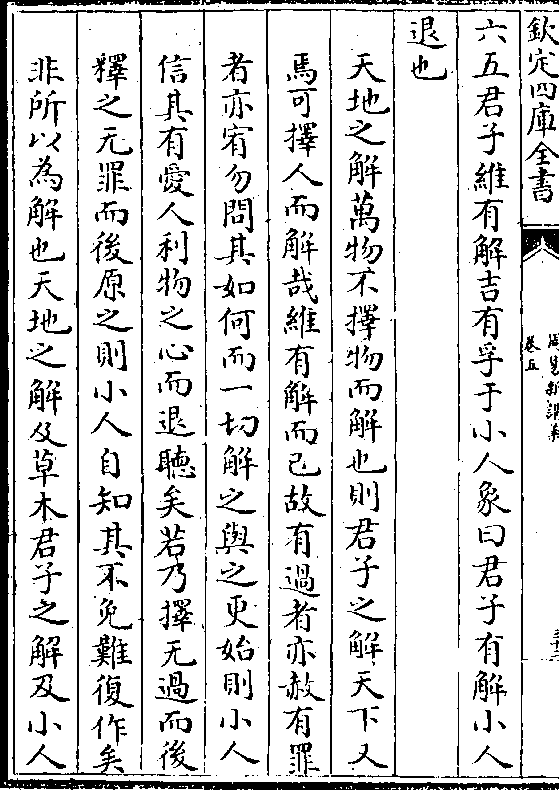 欽定四庫全書
卷五
六五君子維有解吉有孚于小人象曰君子有解小人
退也
天地之解萬物不擇物而解也則君子之解天下又
焉可擇人而解哉維有解而已故有過者亦赦有罪
者亦宥勿問其如何而一切解之與之更始則小人
信其有愛人利物之心而退聽矣若乃擇无過而後
釋之无罪而後原之則小人自知其不免難復作矣
非所以為解也天地之解及草木君子之解及小人